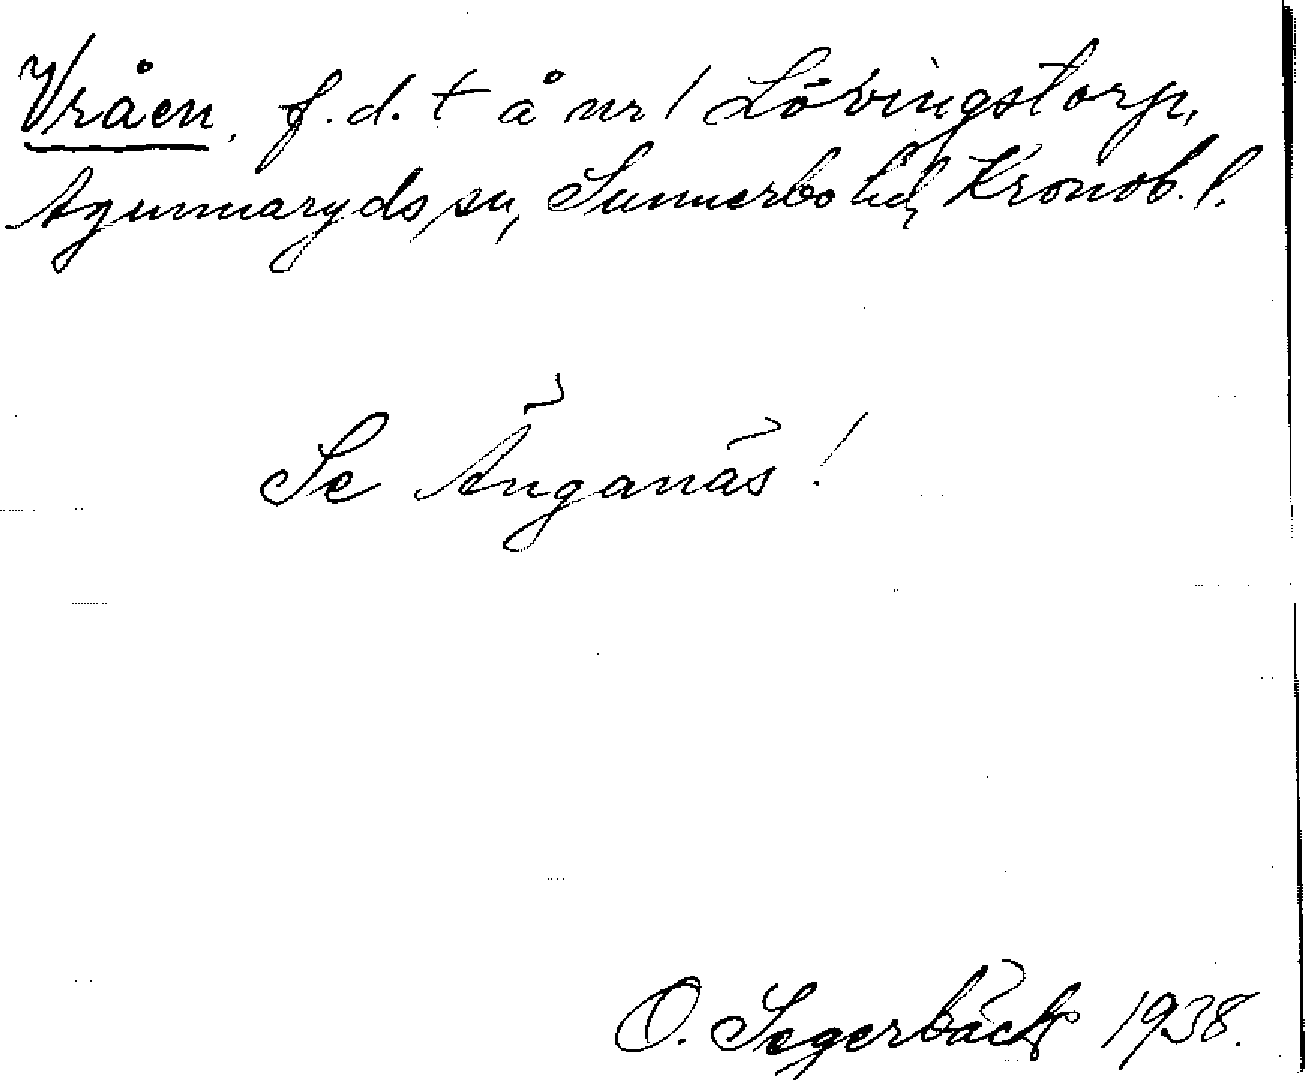 Vråen, f.d. t å nr 1 Lövingstorp,
Agunnaryds sn, Sunnerbo hd, Kronob. l.
Se Änganäs!
O. Segerbäck 1938.